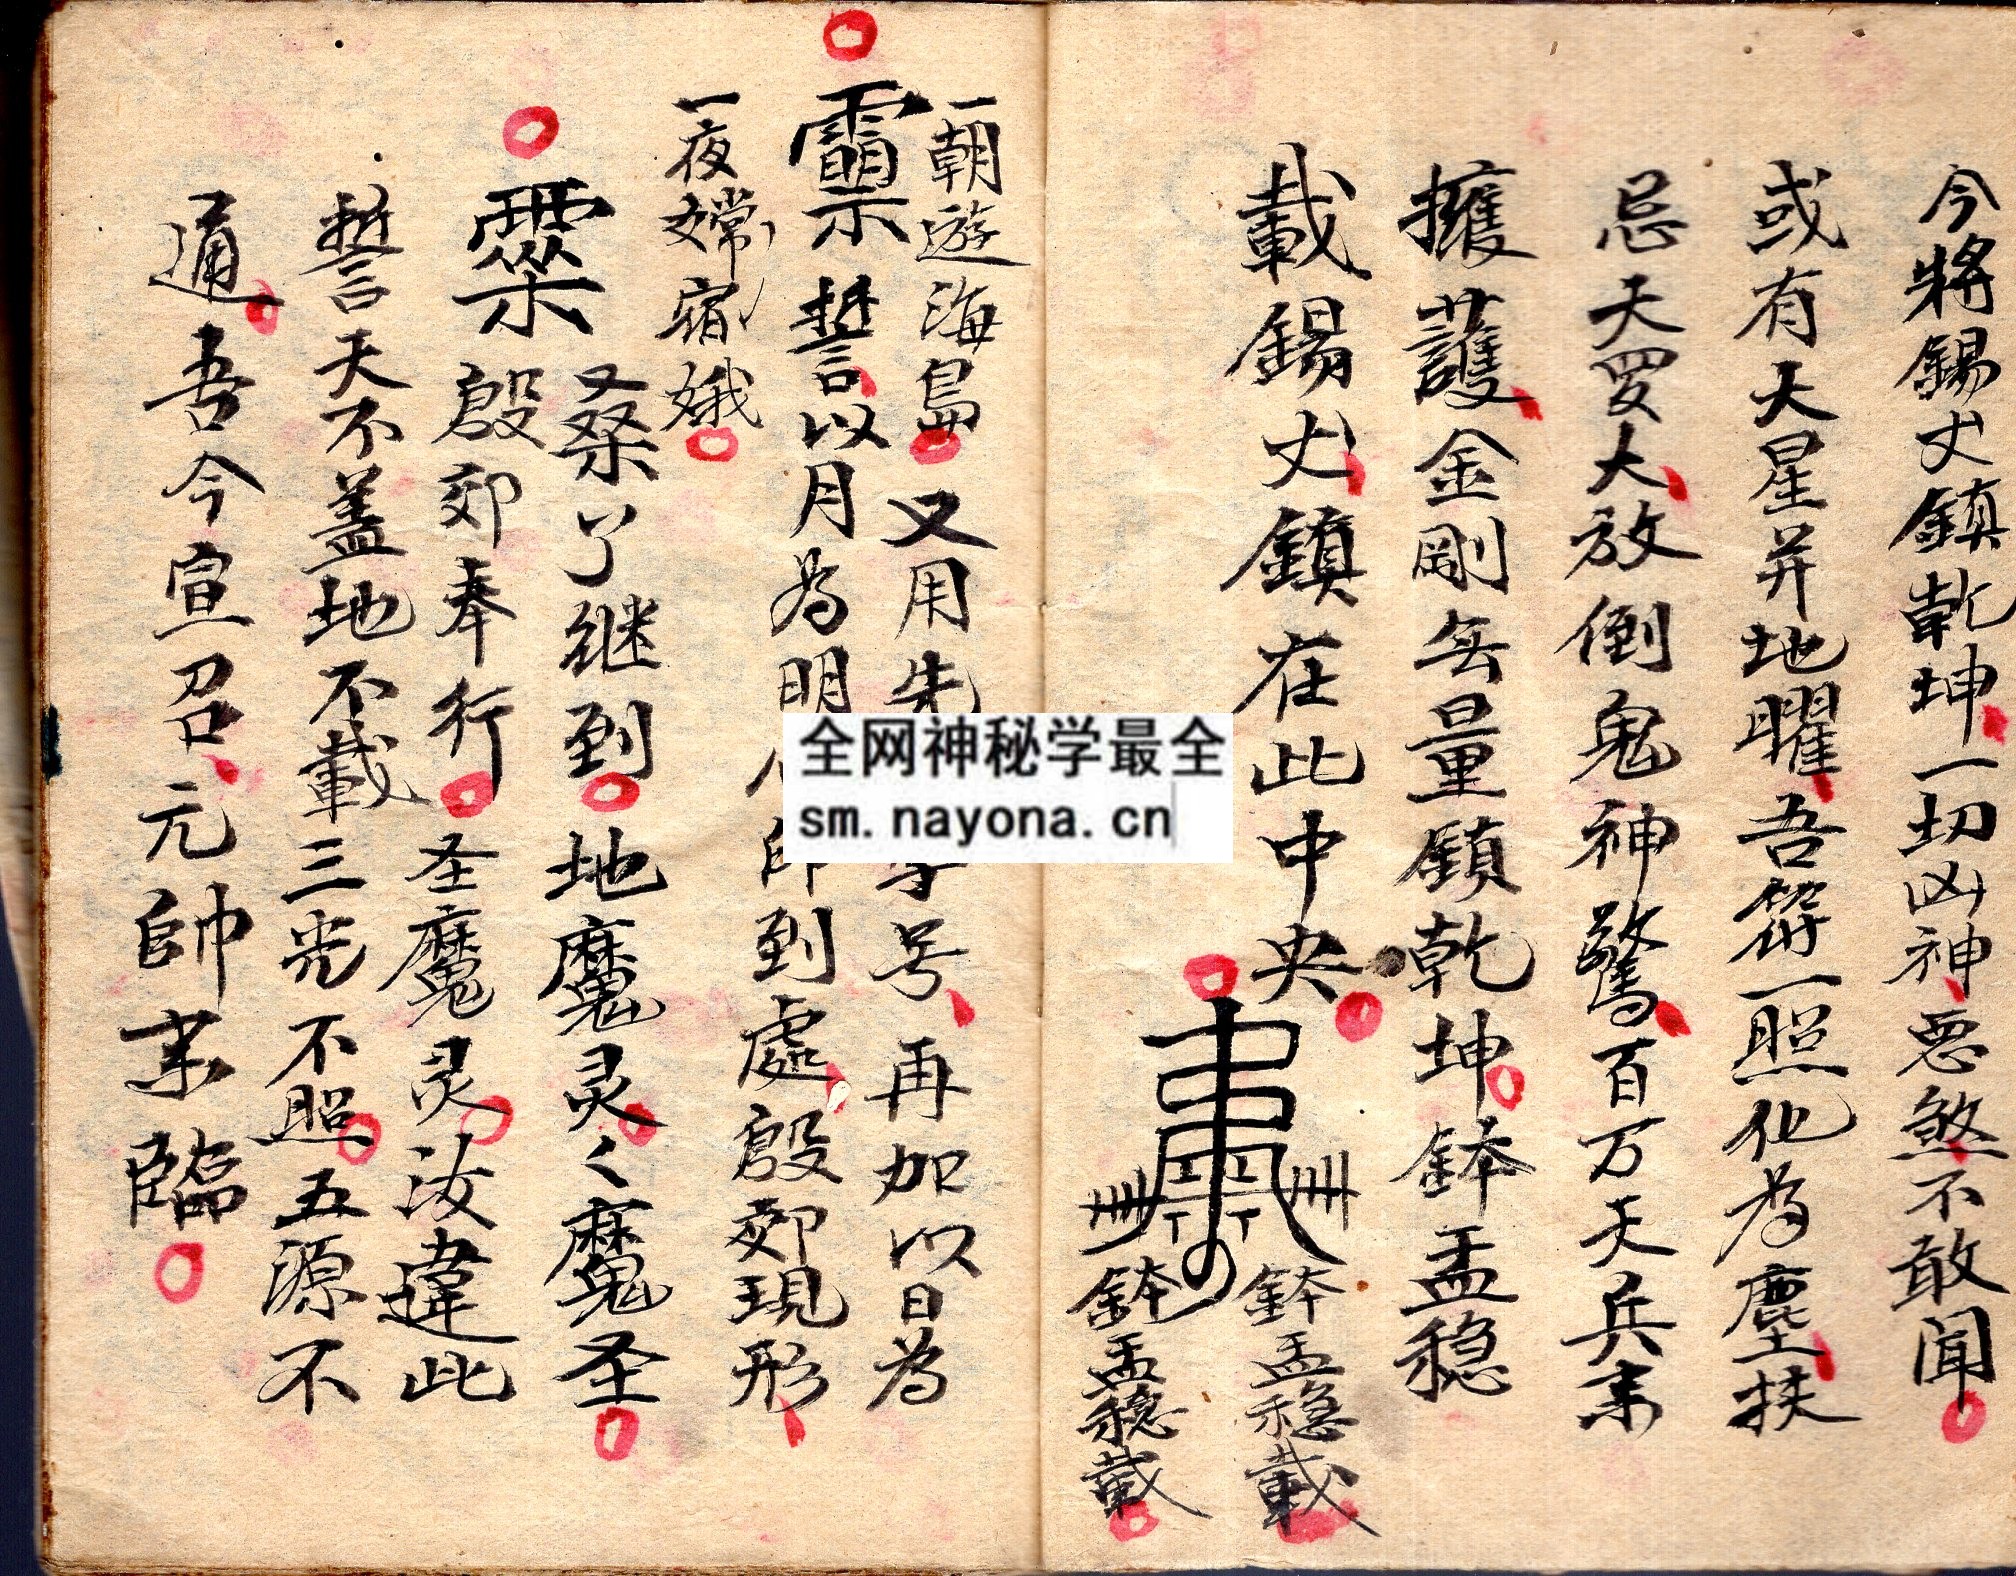 今將錫丈鎮乾坤一切凶神惡煞不敢闻
或有大星并地曜吾符一照化為塵扶
忌天罗大放倒鬼神驚百万天兵来
擁護金剛無量鎮乾坤鉢盂穏
載錫丈鎮在此中央
鉢盂穏載
鉢盂穏載
一朝遊海島又用先号再加以日為
誓以月為明師到處殷郊現形
一夜嫦宿娥
桑了继到地魔灵く魔圣
殷郊奉行圣魔灵汝違此
誓天不盖地不載三光不照五源不
通吾今宣召元帥来臨
全网神秘学最全
sm.nayona.cn